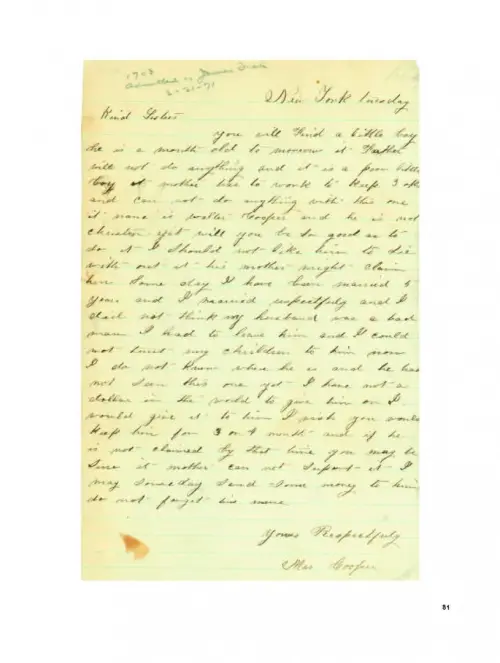 1703
New York tuesday
Kind Sisters
you will find a little boy
he is a month old to morrow it father
will not do anything and it is a poor little
boy it mother has to work to keep 3 others
and can not do anything with this one
it name is walter Cooper and he is not
christen yet will you be so good as to
do it I should not like him to die
with out it his mother might claim
him some day I have been married 5
years and I married respectfuly and I
did not think my husband was a bad
man I had to leave him and I could
not trust my children to him now
I do not know where he is and he has
not seen this one yet I have not a
dollar in the world to give him or I
would give it to him I wish you would
keep him for 3 or 4 month and if he
is not claimed by that time you may be
sure it mother can not suport it I
may someday send some money to him
do not forget his name
yours Respectfuly
Mrs Cooper
81